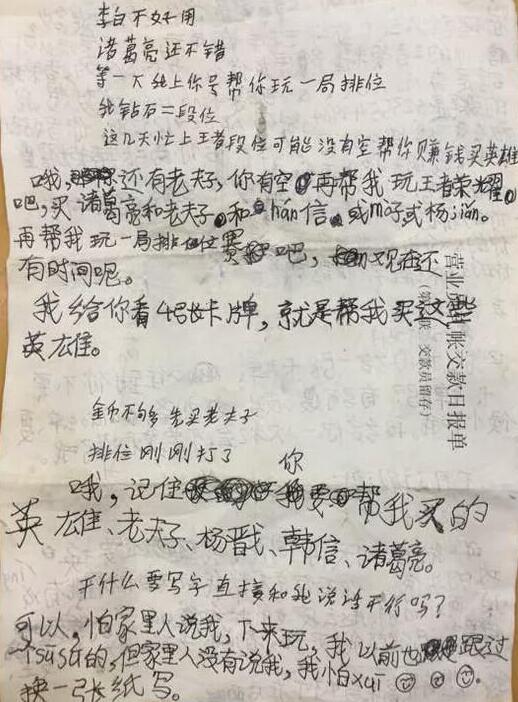 李白不好用
诸葛亮还不错
等一大我上你号帮你玩一局排位
我钻石二段位
这几天忙上王者段位可能没有空帮你赚钱买英雄
哦,还有老夫子,你有空再帮我玩王者荣耀
吧,买诸葛亮和老夫子和hán信。或m子或杨jiǎn。
再帮我玩一局排位赛吧,现在还
有时间呢。
我给你看4张卡牌,就是帮我买这些
英雄。
金币不够多先买老夫子
排位刚刚打了
哦,记住你要帮我买的
英雄、老夫子、杨戬、韩信、诸葛亮。
干什么要写字直接和我说话不行吗?
可以,怕家里人说我,下来玩,我以前也跟过
sūsū的,但家里人没有说我,我怕xuī
换一张纸写。
营业款日报单
交款员留存